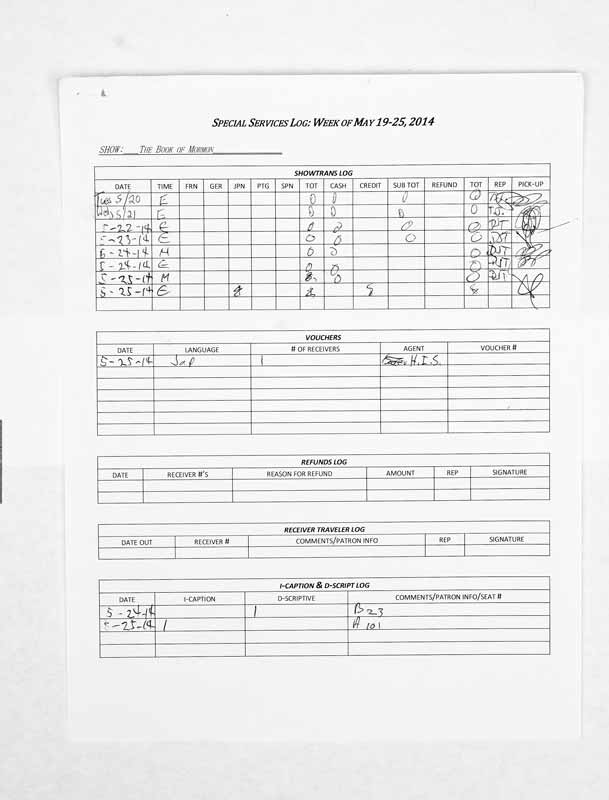 SPECIAL SERVICES LOG: WEEK OF MAY 19-25, 2014
SHOW: THE BOOK OF MORMON
SHOWTRANS LOG
DATE TIME FRN GER JPN PTG SPN TOT CASH CREDIT SUB TOT REFUND TOT REP PICK-UP
Tues 5/20 E 0 0 0 0
Wed 5/21 E 0 0 0 0
5-22-14 E 0 0 0 0 DJT
5-23-14 E 0 0 0 0 DJT
5-24-14 M 0 0 0 DJT
5-24-14 E 0 0 0 DJT
5-25-14 M 0 0 DJT
5-25-14 E 8 8 8 8
VOUCHERS
DATE LANGUAGE # OF RECEIVERS AGENT VOUCHER #
5-25-14 Jap 1 H.I.S.
REFUNDS LOG
DATE RECEIVER #'S REASON FOR REFUND AMOUNT REP SIGNATURE
RECEIVER TRAVELER LOG
DATE OUT RECEIVER # COMMENTS/PATRON INFO REP SIGNATURE
I-CAPTION & D-SCRIPT LOG
DATE I-CAPTION D-SCRIPTIVE COMMENTS/PATRON INFO/SEAT #
5-24-14 1 B23
5-25-14 1 A 101